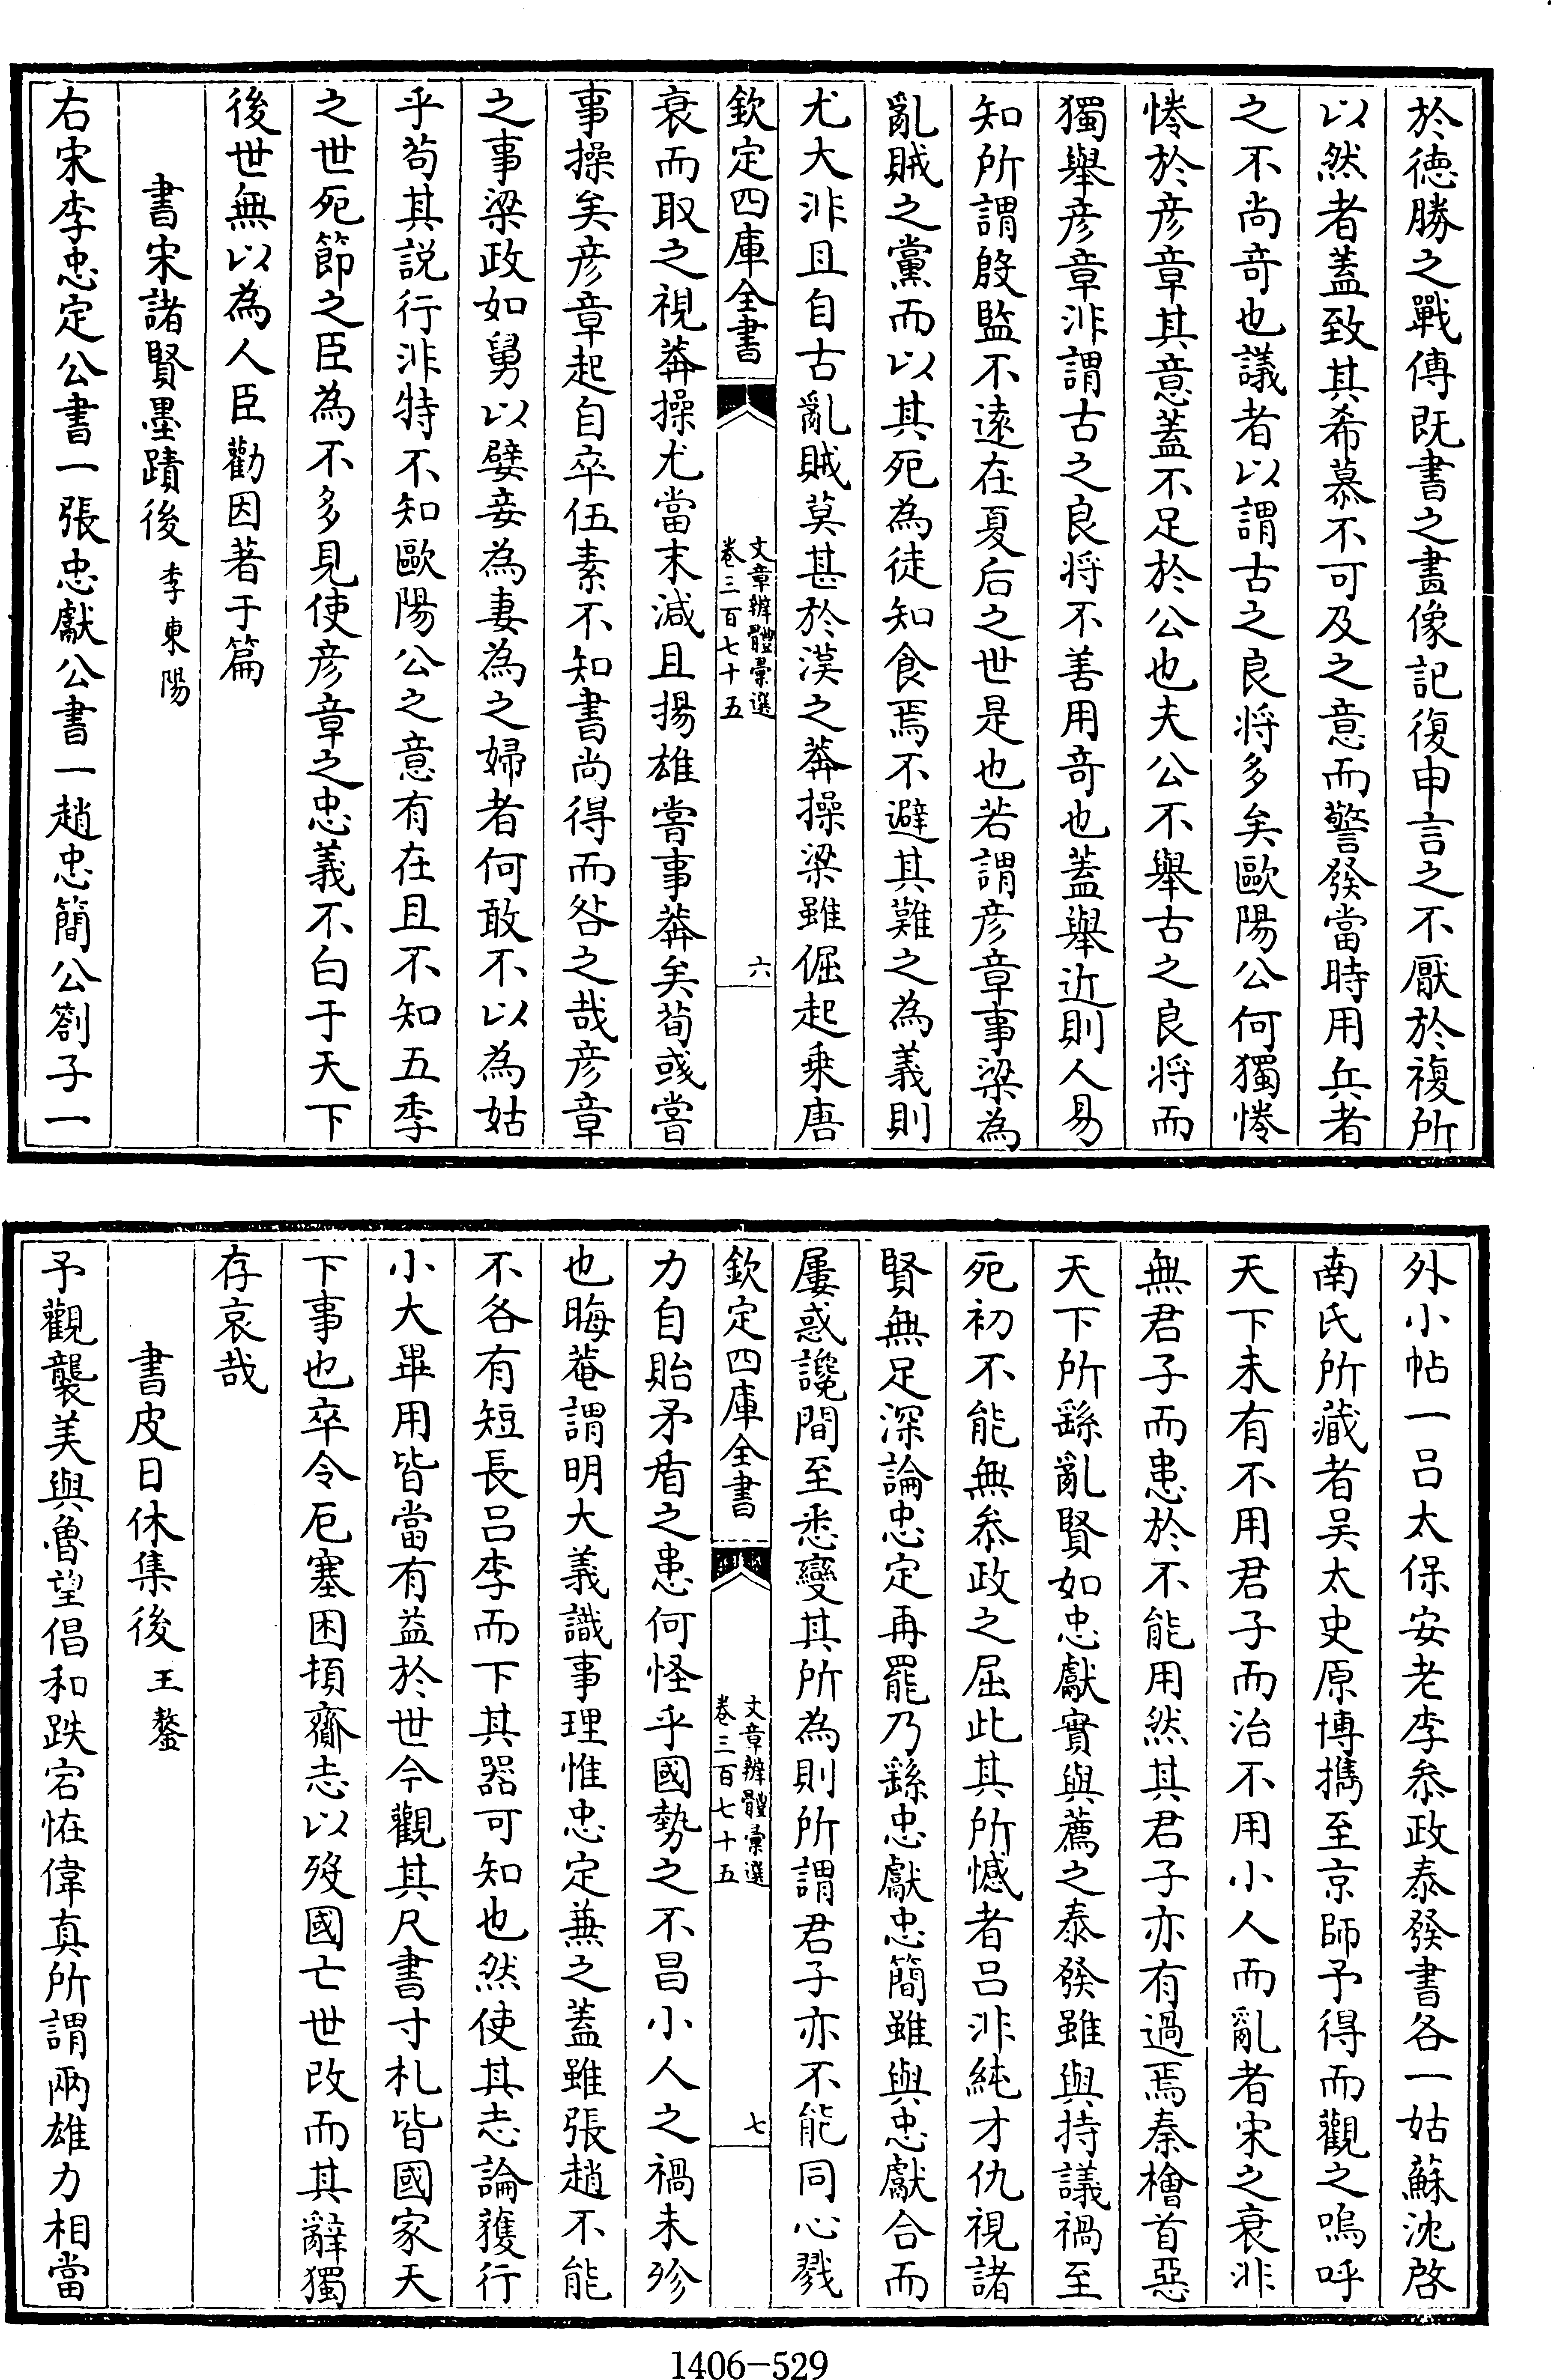 於德勝之戰傳既書之畫像記復申言之不厭於複所
以然者蓋致其希慕不可及之意而警發當時用兵者
之不尚竒也議者以謂古之良將多矣歐陽公何獨惓
惓於彦章其意蓋不足於公也夫公不舉古之良將而
獨舉彦章非謂古之良將不善用竒也蓋舉近則人易
知所謂殷監不遠在夏后之世是也若謂彦章事梁為
亂賊之黨而以其死為徒知食焉不避其難之為義則
尤大非且自古亂賊莫甚於漢之莽操梁雖倔起乗唐
欽定四庫全書
文章辨體彙選
卷三百七十五
六
衰而取之視莽操尤當末減且揚雄嘗事莽矣荀彧嘗
事操矣彦章起自卒伍素不知書尚得而咎之哉彦章
之事梁政如舅以嬖妾為妻為之婦者何敢不以為姑
乎苟其説行非特不知歐陽公之意有在且不知五季
之世死節之臣為不多見使彦章之忠義不白于天下
後世無以為人臣勸因著于篇
書宋諸賢墨蹟後 李東陽
右宋李忠定公書一張忠獻公書一趙忠簡公劄子一
外小帖一吕太保安老李叅政泰發書各一姑蘇沈啓
南氏所藏者吴太史原博攜至京師予得而觀之嗚呼
天下未有不用君子而治不用小人而亂者宋之衰非
無君子而患於不能用然其君子亦有過焉秦檜首惡
天下所繇亂賢如忠獻實與薦之泰發雖與持議禍至
死初不能無叅政之屈此其所憾者吕非純才仇視諸
賢無足深論忠定再罷乃繇忠獻忠簡雖與忠獻合而
屢惑讒間至悉變其所為則所謂君子亦不能同心戮
欽定四庫全書
文章辨體彙選
卷三百七十五
七
力自貽矛盾之患何怪乎國勢之不昌小人之禍未殄
也晦菴謂明大義識事理惟忠定兼之蓋雖張趙不能
不各有短長吕李而下其器可知也然使其志論獲行
小大畢用皆當有益於世今觀其尺書寸札皆國家天
下事也卒令厄塞困頓齎志以殁國亡世改而其辭獨
存哀哉
書皮日休集後 王鏊
予觀襲美與魯望倡和跌宕恠偉真所謂兩雄力相當
1406-529